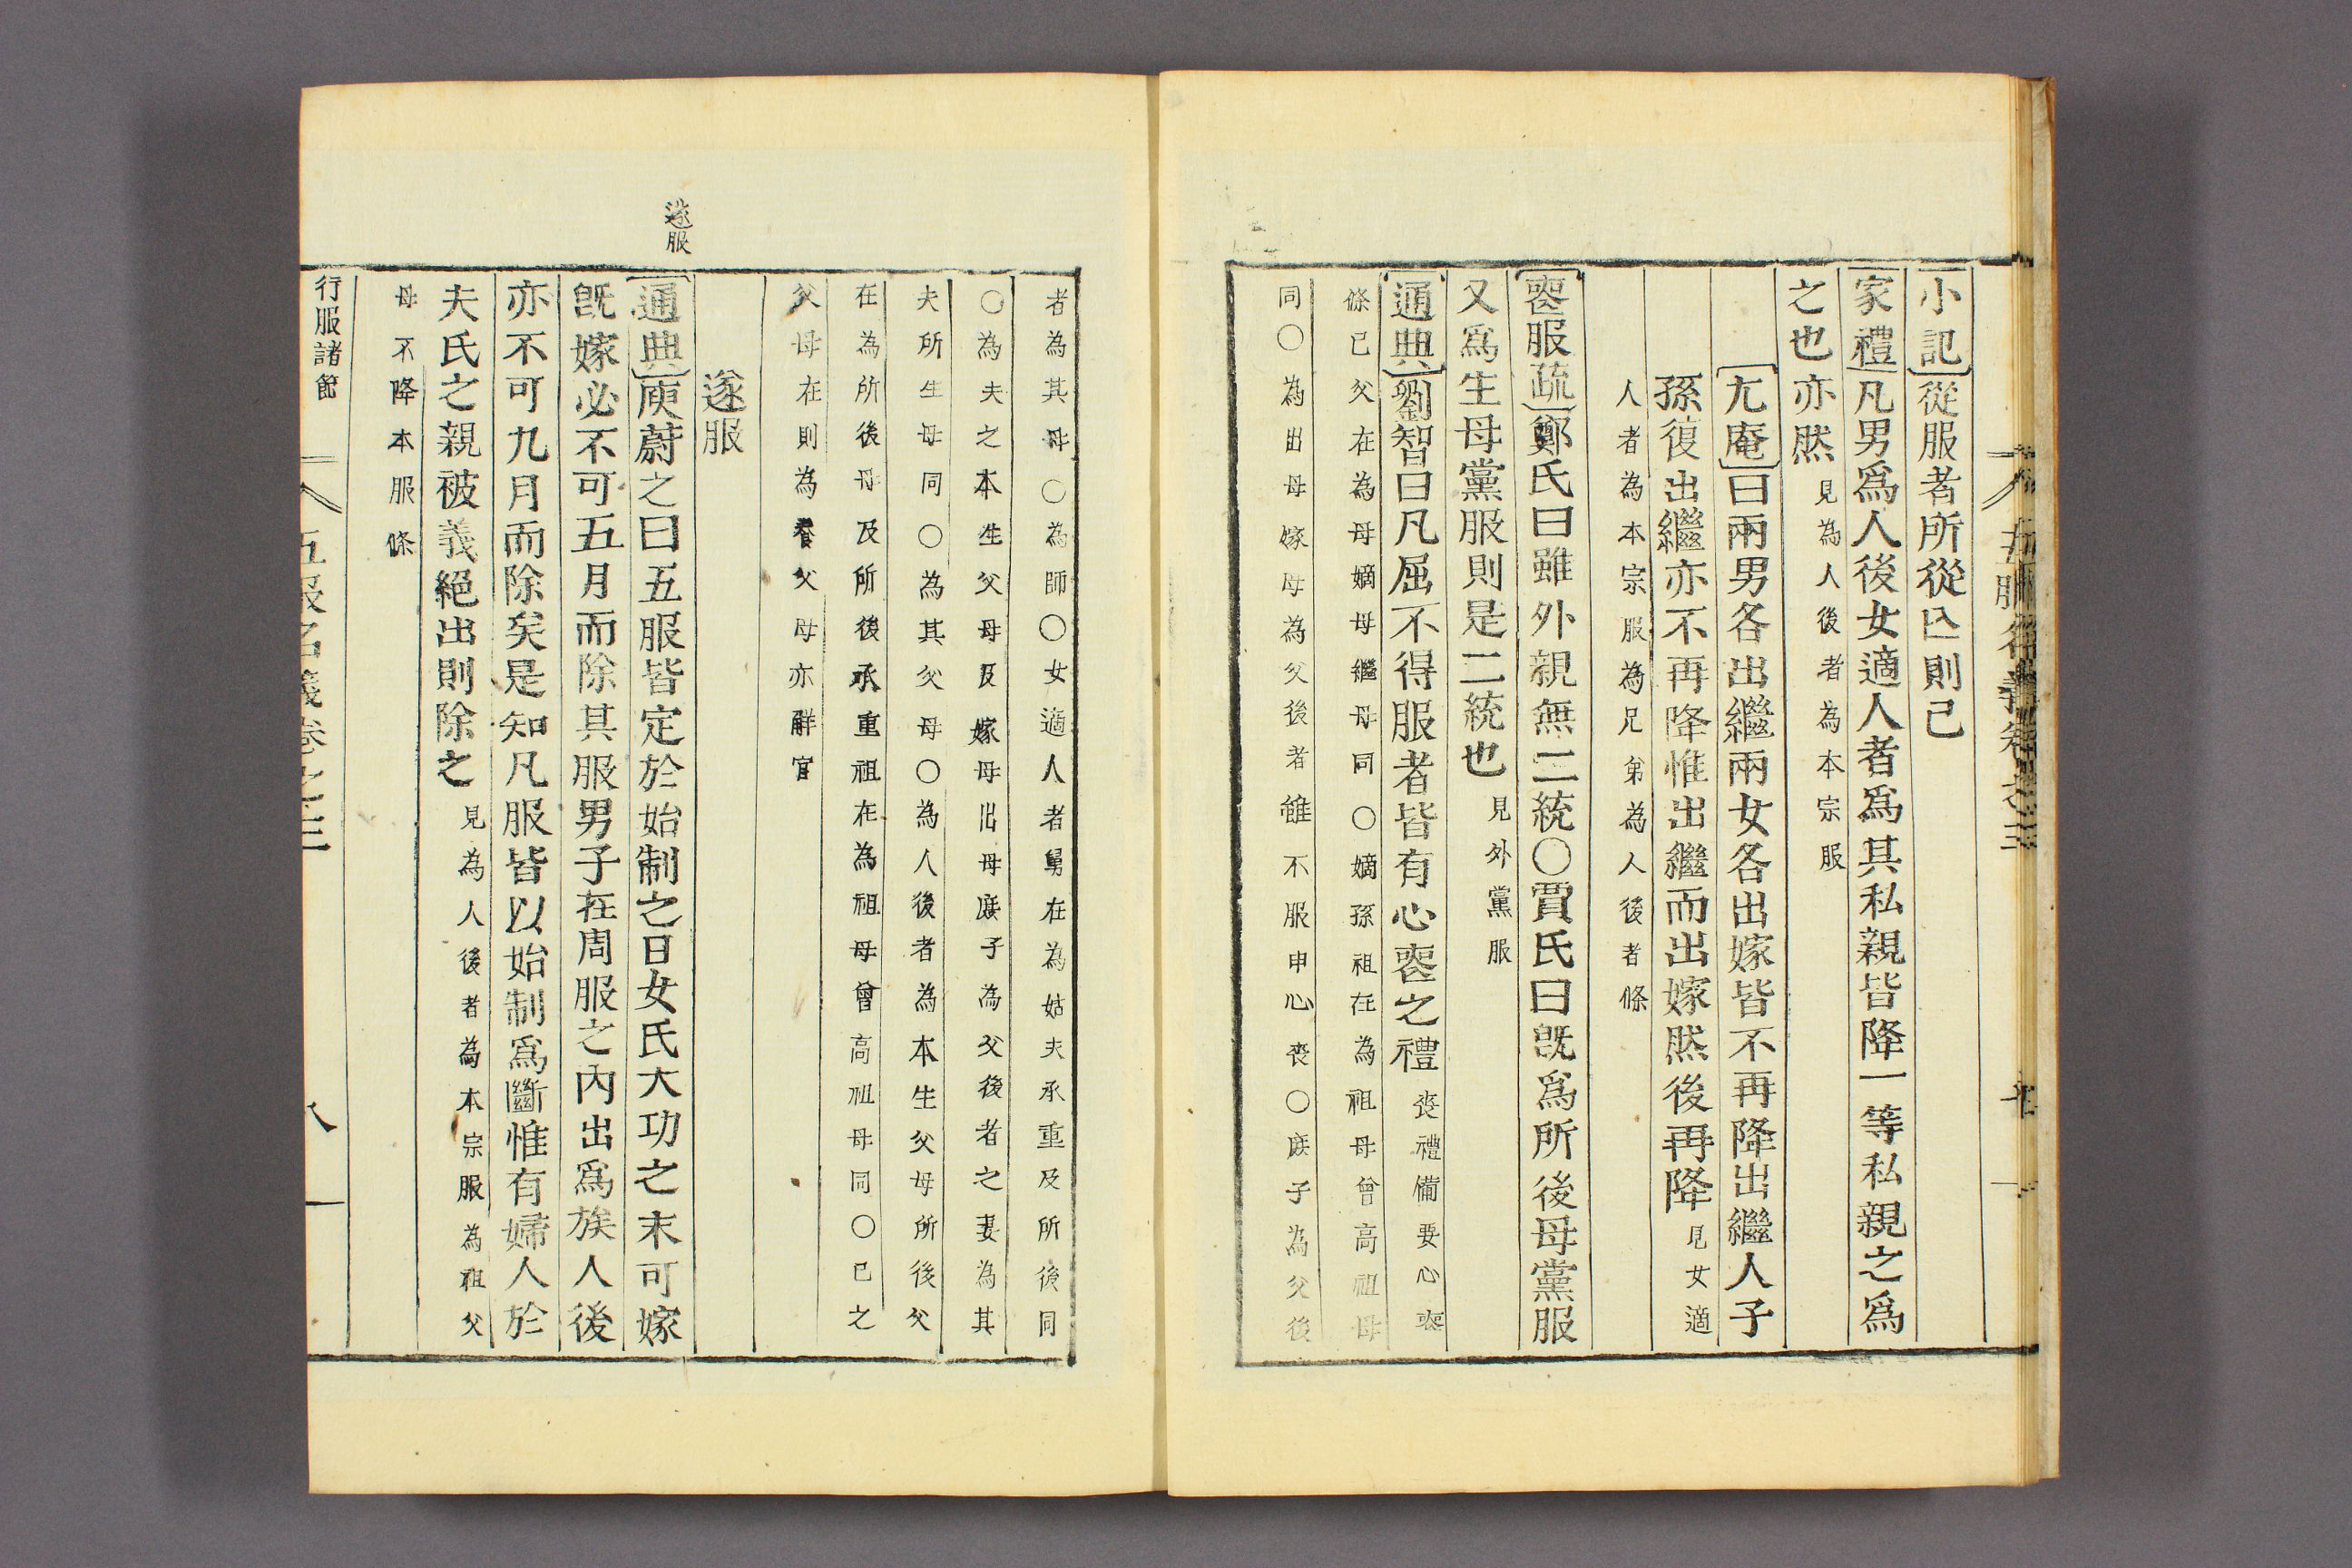 五服名義卷之三
小記從服者所從亾則已
家禮凡男爲人後女適人者爲其私親皆降一等私親之爲
之也亦然見為人後者為本宗服
尤庵曰兩男各出繼兩女各出嫁皆不再降出繼人子
孫復出繼亦不再降惟出繼而出嫁然後再降見女適
人者為本宗服為兄弟為人後者條
喪服疏鄭氏曰雖外親無二統〇賈氏曰旣爲所後母黨服
又爲生母黨服則是二統也見外黨服
通典劉智曰凡屈不得服者皆有心喪之禮喪禮備要心喪
條已父在為母嫡母繼母同〇嫡孫祖在為祖母曾高祖母
同〇為出母嫁母為父後者雖不服申心喪〇庶子為父後
者為其母〇為師〇女適人者舅在為姑夫承重及所後同
〇為夫之本生父母及嫁母出母庶子為父後者之妻為其
夫所生母同〇為其父母〇為人後者為本生父母所後父
在為所後母及所後承重祖在為祖母曾高祖母同〇已之
父母在則為養父母亦解官
遂服
遂服
通典庾蔚之曰五服皆定於始制之日女氏大功之末可嫁
旣嫁必不可五月而除其服男子在周服之內出爲族人後
亦不可九月而除矣是知凡服皆以始制爲斷惟有婦人於
夫氏之親被義絕出則除之見為人後者為本宗服為祖父
母不降本服條
行服諸節
五服名義卷之三
八